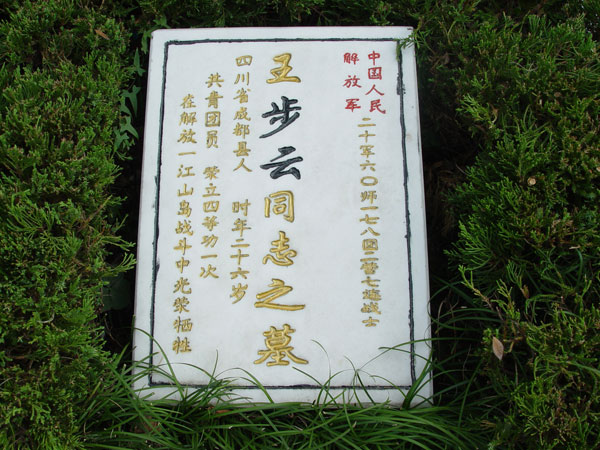 中国人民
解放军
二十军六〇师一七八团二营七连战士
王步云同志之墓
四川省成都县人 时年二十六岁
共青团员 荣立四等功一次
在解放一江山岛战斗中光荣牺牲